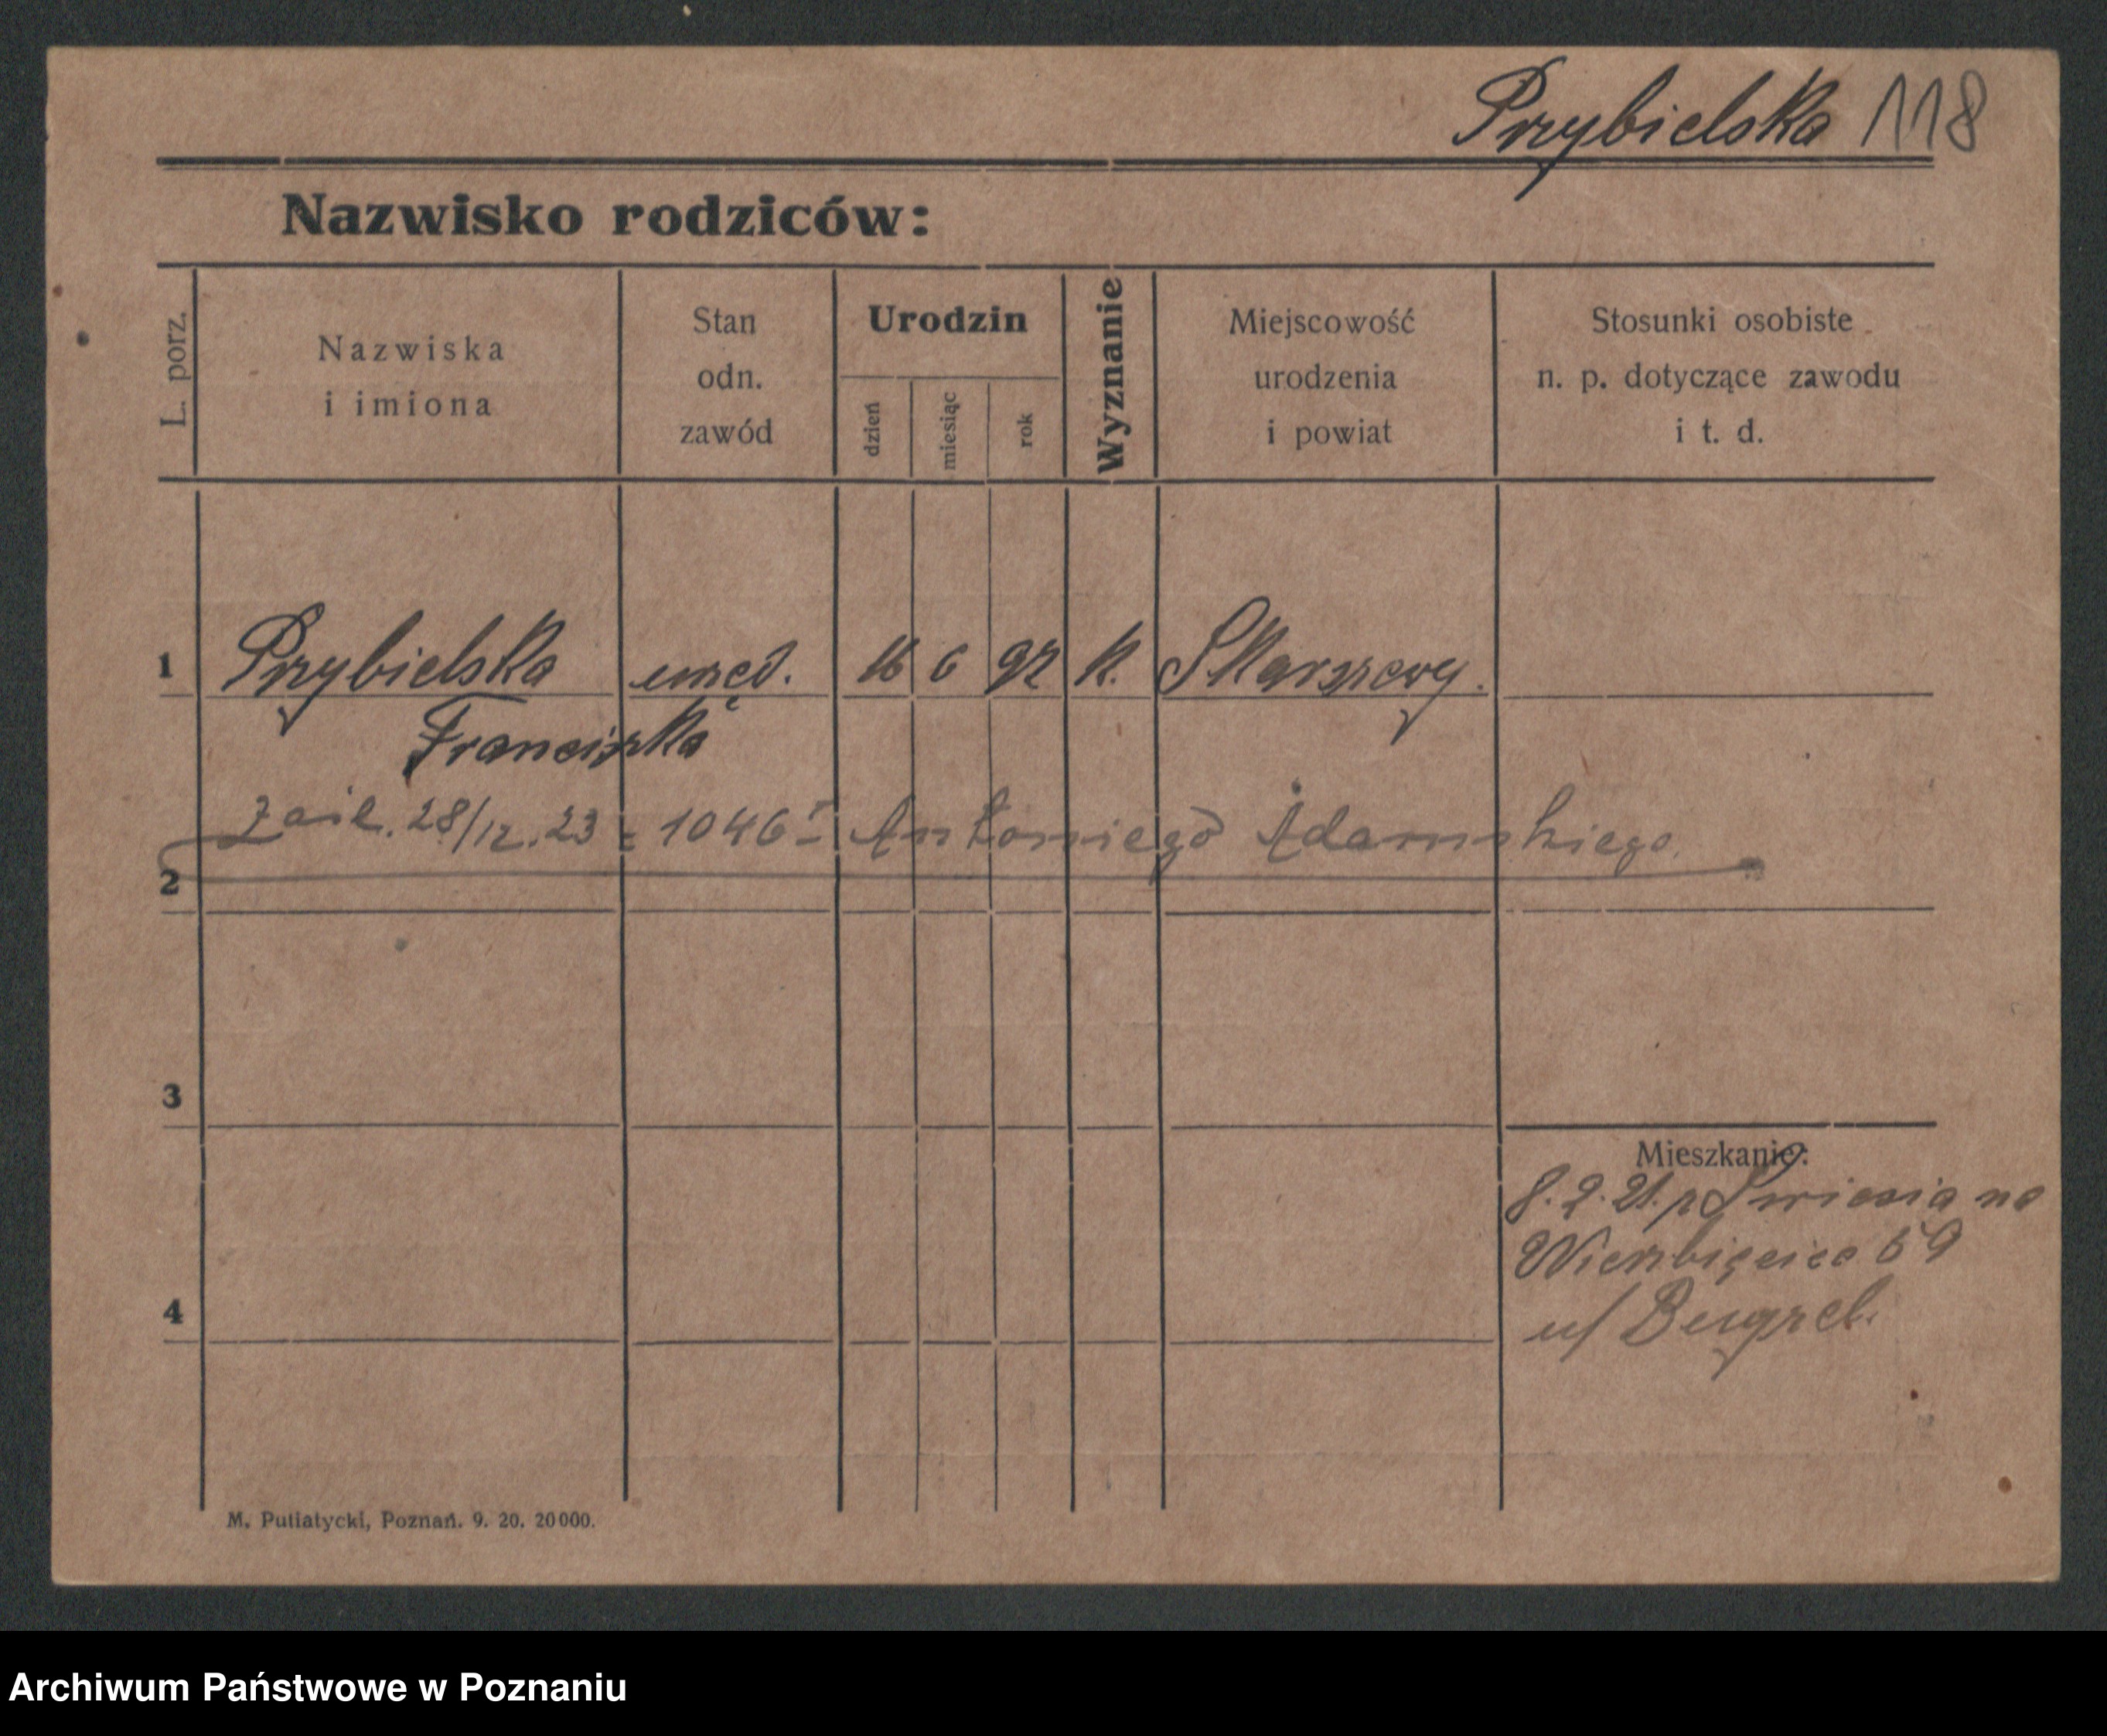 Przybielska 118
Nazwisko rodziców:
L. porz.
Nazwiska
i imiona
Stan
odn.
zawód
Urodzin
dzień
miesiąc
rok
Wyznanie
Miejscowość
urodzenia
i powiat
Stosunki osobiste
n. p. dotyczące zawodu
i t. d.
1 Przybielska 16 6 92 k. Skarszewy.
Franciszka
28/12.23 = 1046 Antoniego Adamskiego.
2
3
Mieszkanie:
8.2.21. na
Wierzbięcice 59
u/
4
M. Putiatycki, Poznań. 9. 20. 20000.
Archiwum Państwowe w Poznaniu